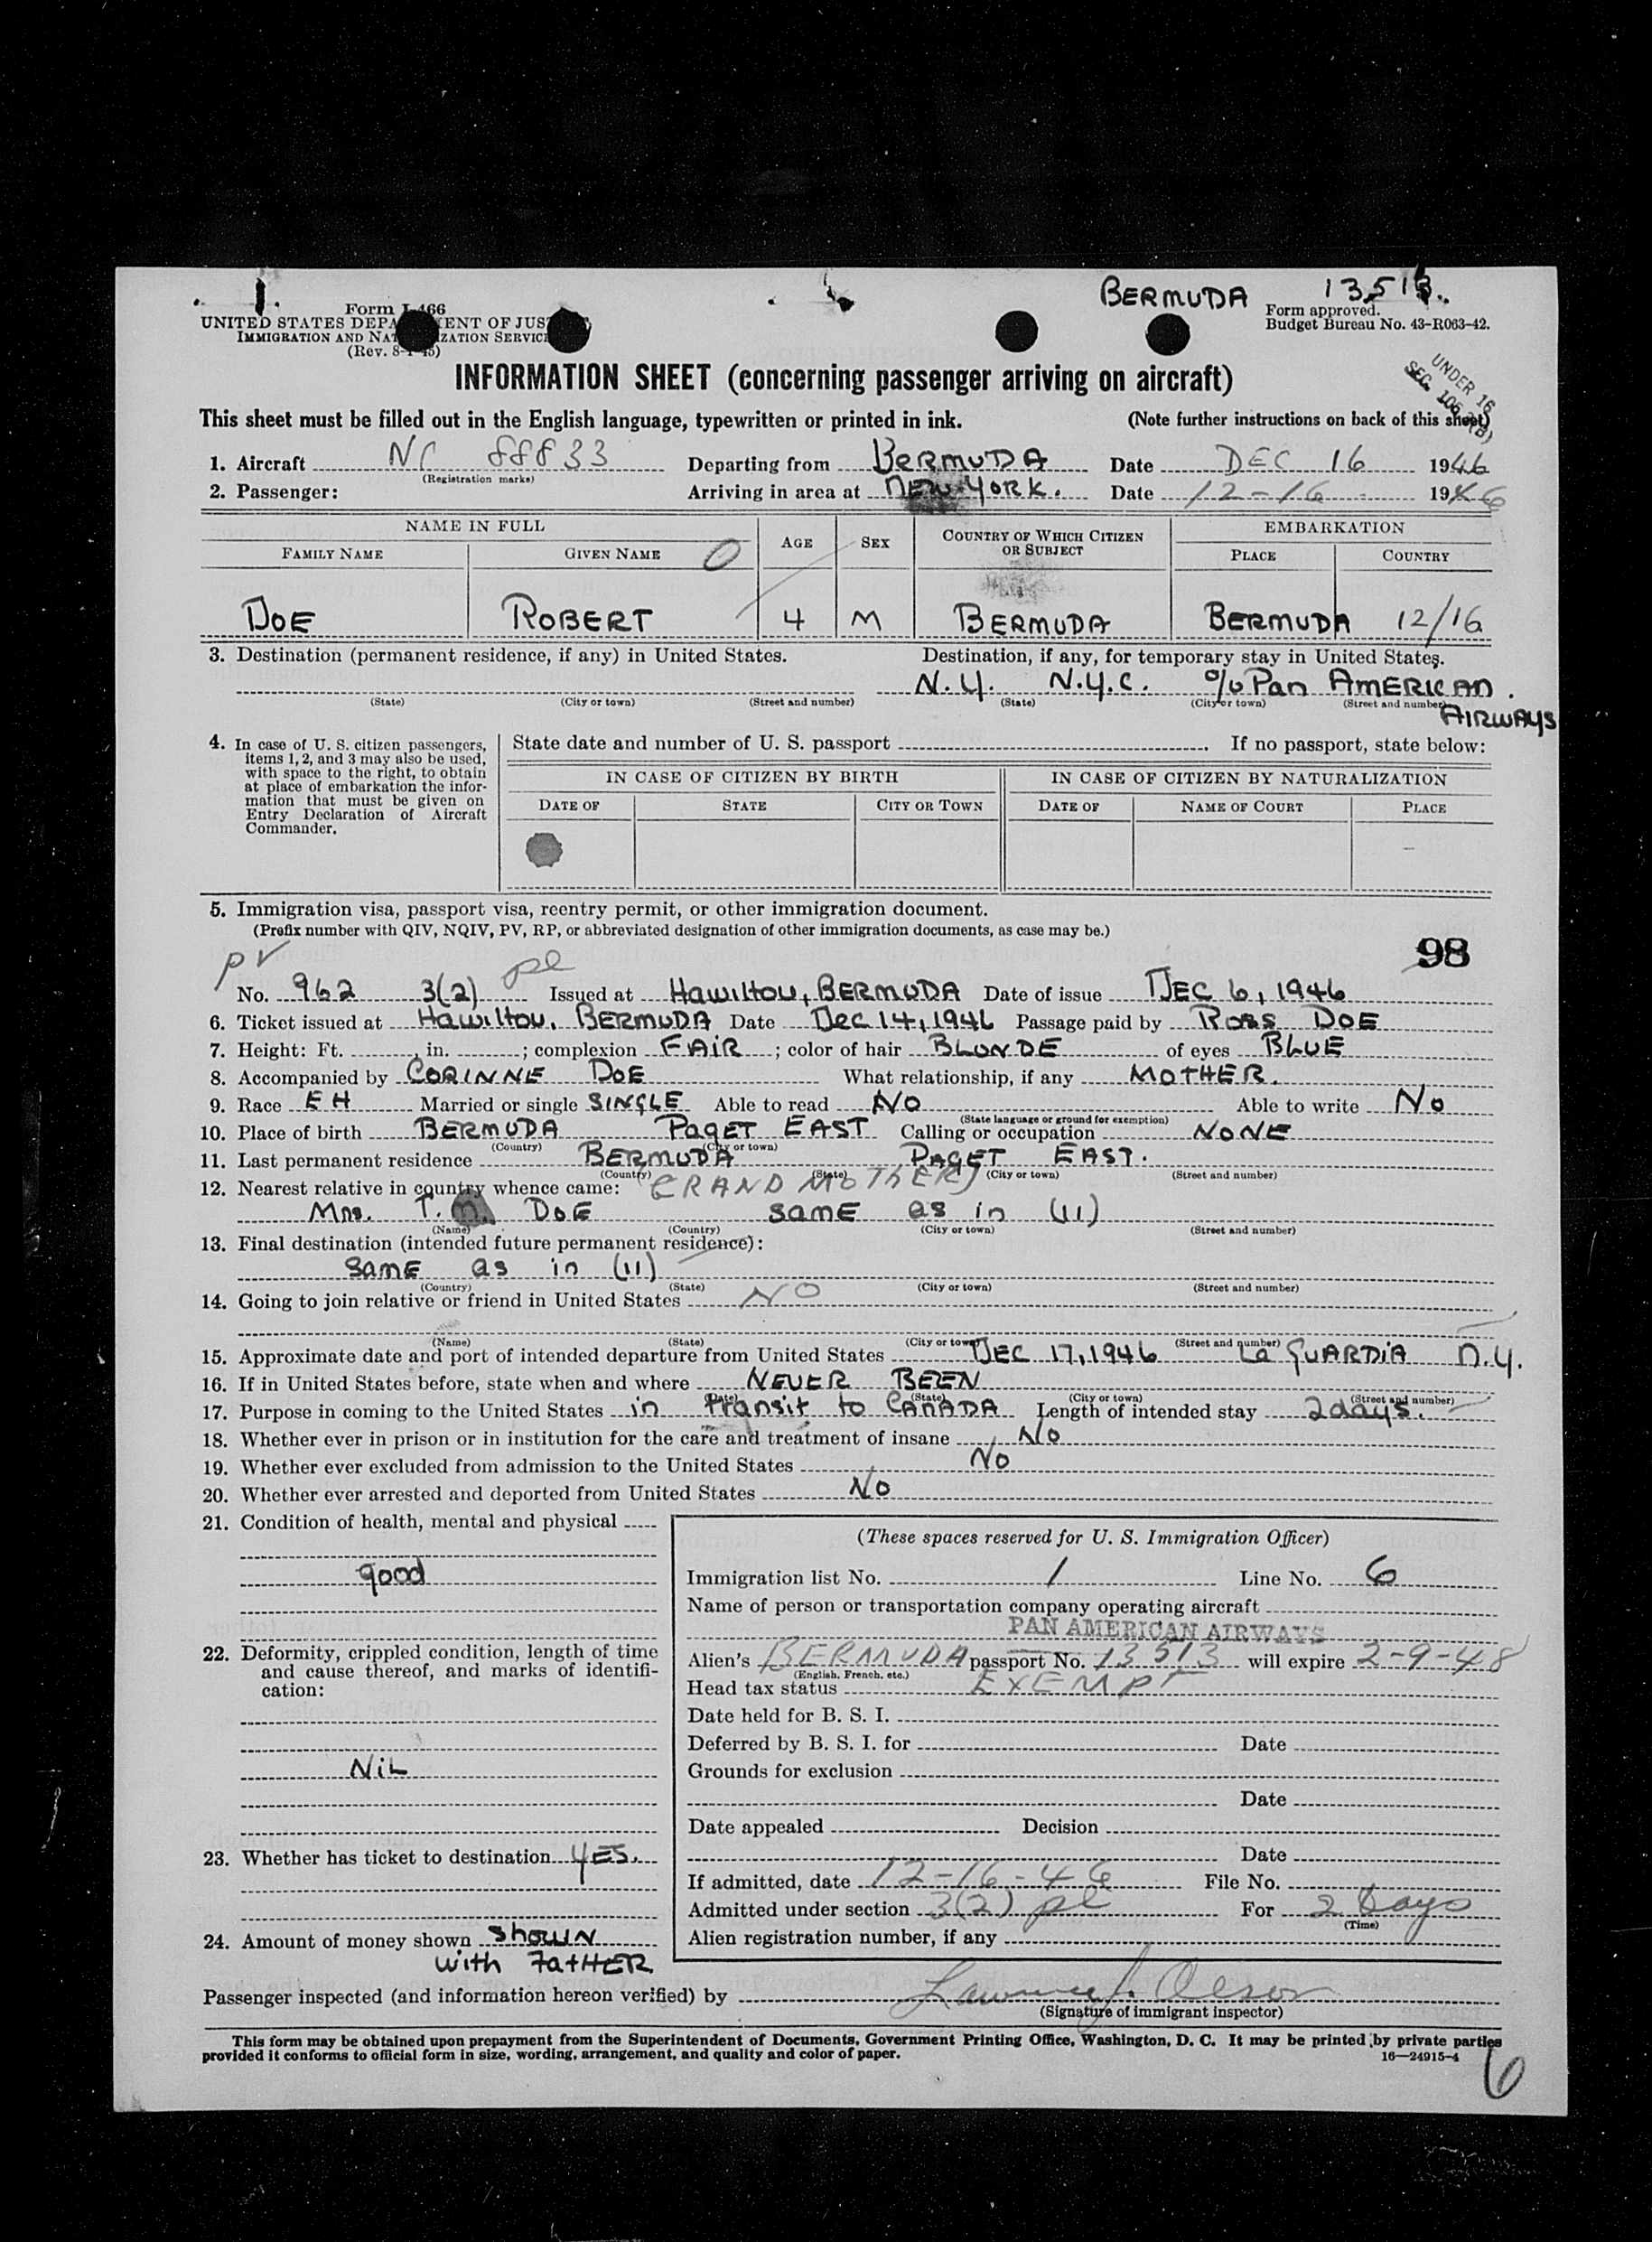 1.
BERMUDA 13513.
Form I-466
Form approved.
UNITED STATES DEPA ENT OF JUS
Budget Bureau No. 43-R063-42.
IMMIGRATION AND NAT IZATION SERVICE
(Rev. 8-1-45)
UNDER 16
SEC. 106
INFORMATION SHEET (concerning passenger arriving on aircraft)
This sheet must be filled out in the English language, typewritten or printed in ink. (Note further instructions on back of this sheet)
1. Aircraft NC 88833 Departing from BERMUDA Date DEC 16 1946
(Registration marks)
2. Passenger: Arriving in area at NEW YORK. Date 12-16 1946
NAME IN FULL AGE SEX COUNTRY OF WHICH CITIZEN OR SUBJECT EMBARKATION
FAMILY NAME GIVEN NAME PLACE COUNTRY
0
DOE ROBERT 4 M BERMUDA BERMUDA 12/16
3. Destination (permanent residence, if any) in United States. Destination, if any, for temporary stay in United States.
N.Y. N.Y.C. c/o Pan AMERICAN.
(State) (City or town) (Street and number) (State) (City or town) (Street and number)
AIRWAYS
4. In case of U. S. citizen passengers, items 1, 2, and 3 may also be used, with space to the right, to obtain at place of embarkation the information that must be given on Entry Declaration of Aircraft Commander.
State date and number of U. S. passport . If no passport, state below:
IN CASE OF CITIZEN BY BIRTH IN CASE OF CITIZEN BY NATURALIZATION
DATE OF STATE CITY OR TOWN DATE OF NAME OF COURT PLACE
5. Immigration visa, passport visa, reentry permit, or other immigration document.
(Prefix number with QIV, NQIV, PV, RP, or abbreviated designation of other immigration documents, as case may be.)
98
PV
pl
No. 962 3(2) Issued at Hamilton, BERMUDA Date of issue DEC 6, 1946
6. Ticket issued at Hamilton, BERMUDA Date Dec 14, 1946 Passage paid by ROSS DOE
7. Height: Ft. , in. ; complexion FAIR ; color of hair BLONDE of eyes BLUE
8. Accompanied by CORINNE DOE What relationship, if any MOTHER.
9. Race EH Married or single SINGLE Able to read NO Able to write No
(State language or ground for exemption)
10. Place of birth BERMUDA PAGET EAST Calling or occupation NONE
(Country) (City or town)
11. Last permanent residence BERMUDA PAGET EAST.
(Country) (State) (City or town) (Street and number)
12. Nearest relative in country whence came: (GRANDMOTHER)
Mrs. T. N. DOE same as in (11)
(Name) (Country) (City or town) (Street and number)
13. Final destination (intended future permanent residence):
same as in (11)
(Country) (State) (City or town) (Street and number)
14. Going to join relative or friend in United States NO
(Name) (State) (City or town) (Street and number)
15. Approximate date and port of intended departure from United States DEC 17, 1946 La GUARDIA N.Y.
16. If in United States before, state when and where NEVER BEEN
(Date) (State) (City or town) (Street and number)
17. Purpose in coming to the United States in transit to CANADA Length of intended stay 2 days.
18. Whether ever in prison or in institution for the care and treatment of insane No
19. Whether ever excluded from admission to the United States No
20. Whether ever arrested and deported from United States No
21. Condition of health, mental and physical
good
22. Deformity, crippled condition, length of time and cause thereof, and marks of identification:
NiL
23. Whether has ticket to destination YES.
24. Amount of money shown shown
with FatHER
(These spaces reserved for U. S. Immigration Officer)
Immigration list No. 1 Line No. 6
Name of person or transportation company operating aircraft
PAN AMERICAN AIRWAYS
Alien's BERMUDA passport No. 13513 will expire 2-9-48
(English, French, etc.)
Head tax status EXEMPT
Date held for B. S. I.
Deferred by B. S. I. for Date
Grounds for exclusion
Date
Date appealed Decision
Date
If admitted, date 12-16-46 File No.
Admitted under section 3(2) pl For 2 Days
(Time)
Alien registration number, if any
Passenger inspected (and information hereon verified) by Olson
(Signature of immigrant inspector)
This form may be obtained upon prepayment from the Superintendent of Documents, Government Printing Office, Washington, D. C. It may be printed by private parties
provided it conforms to official form in size, wording, arrangement, and quality and color of paper. 16—24915-4
6